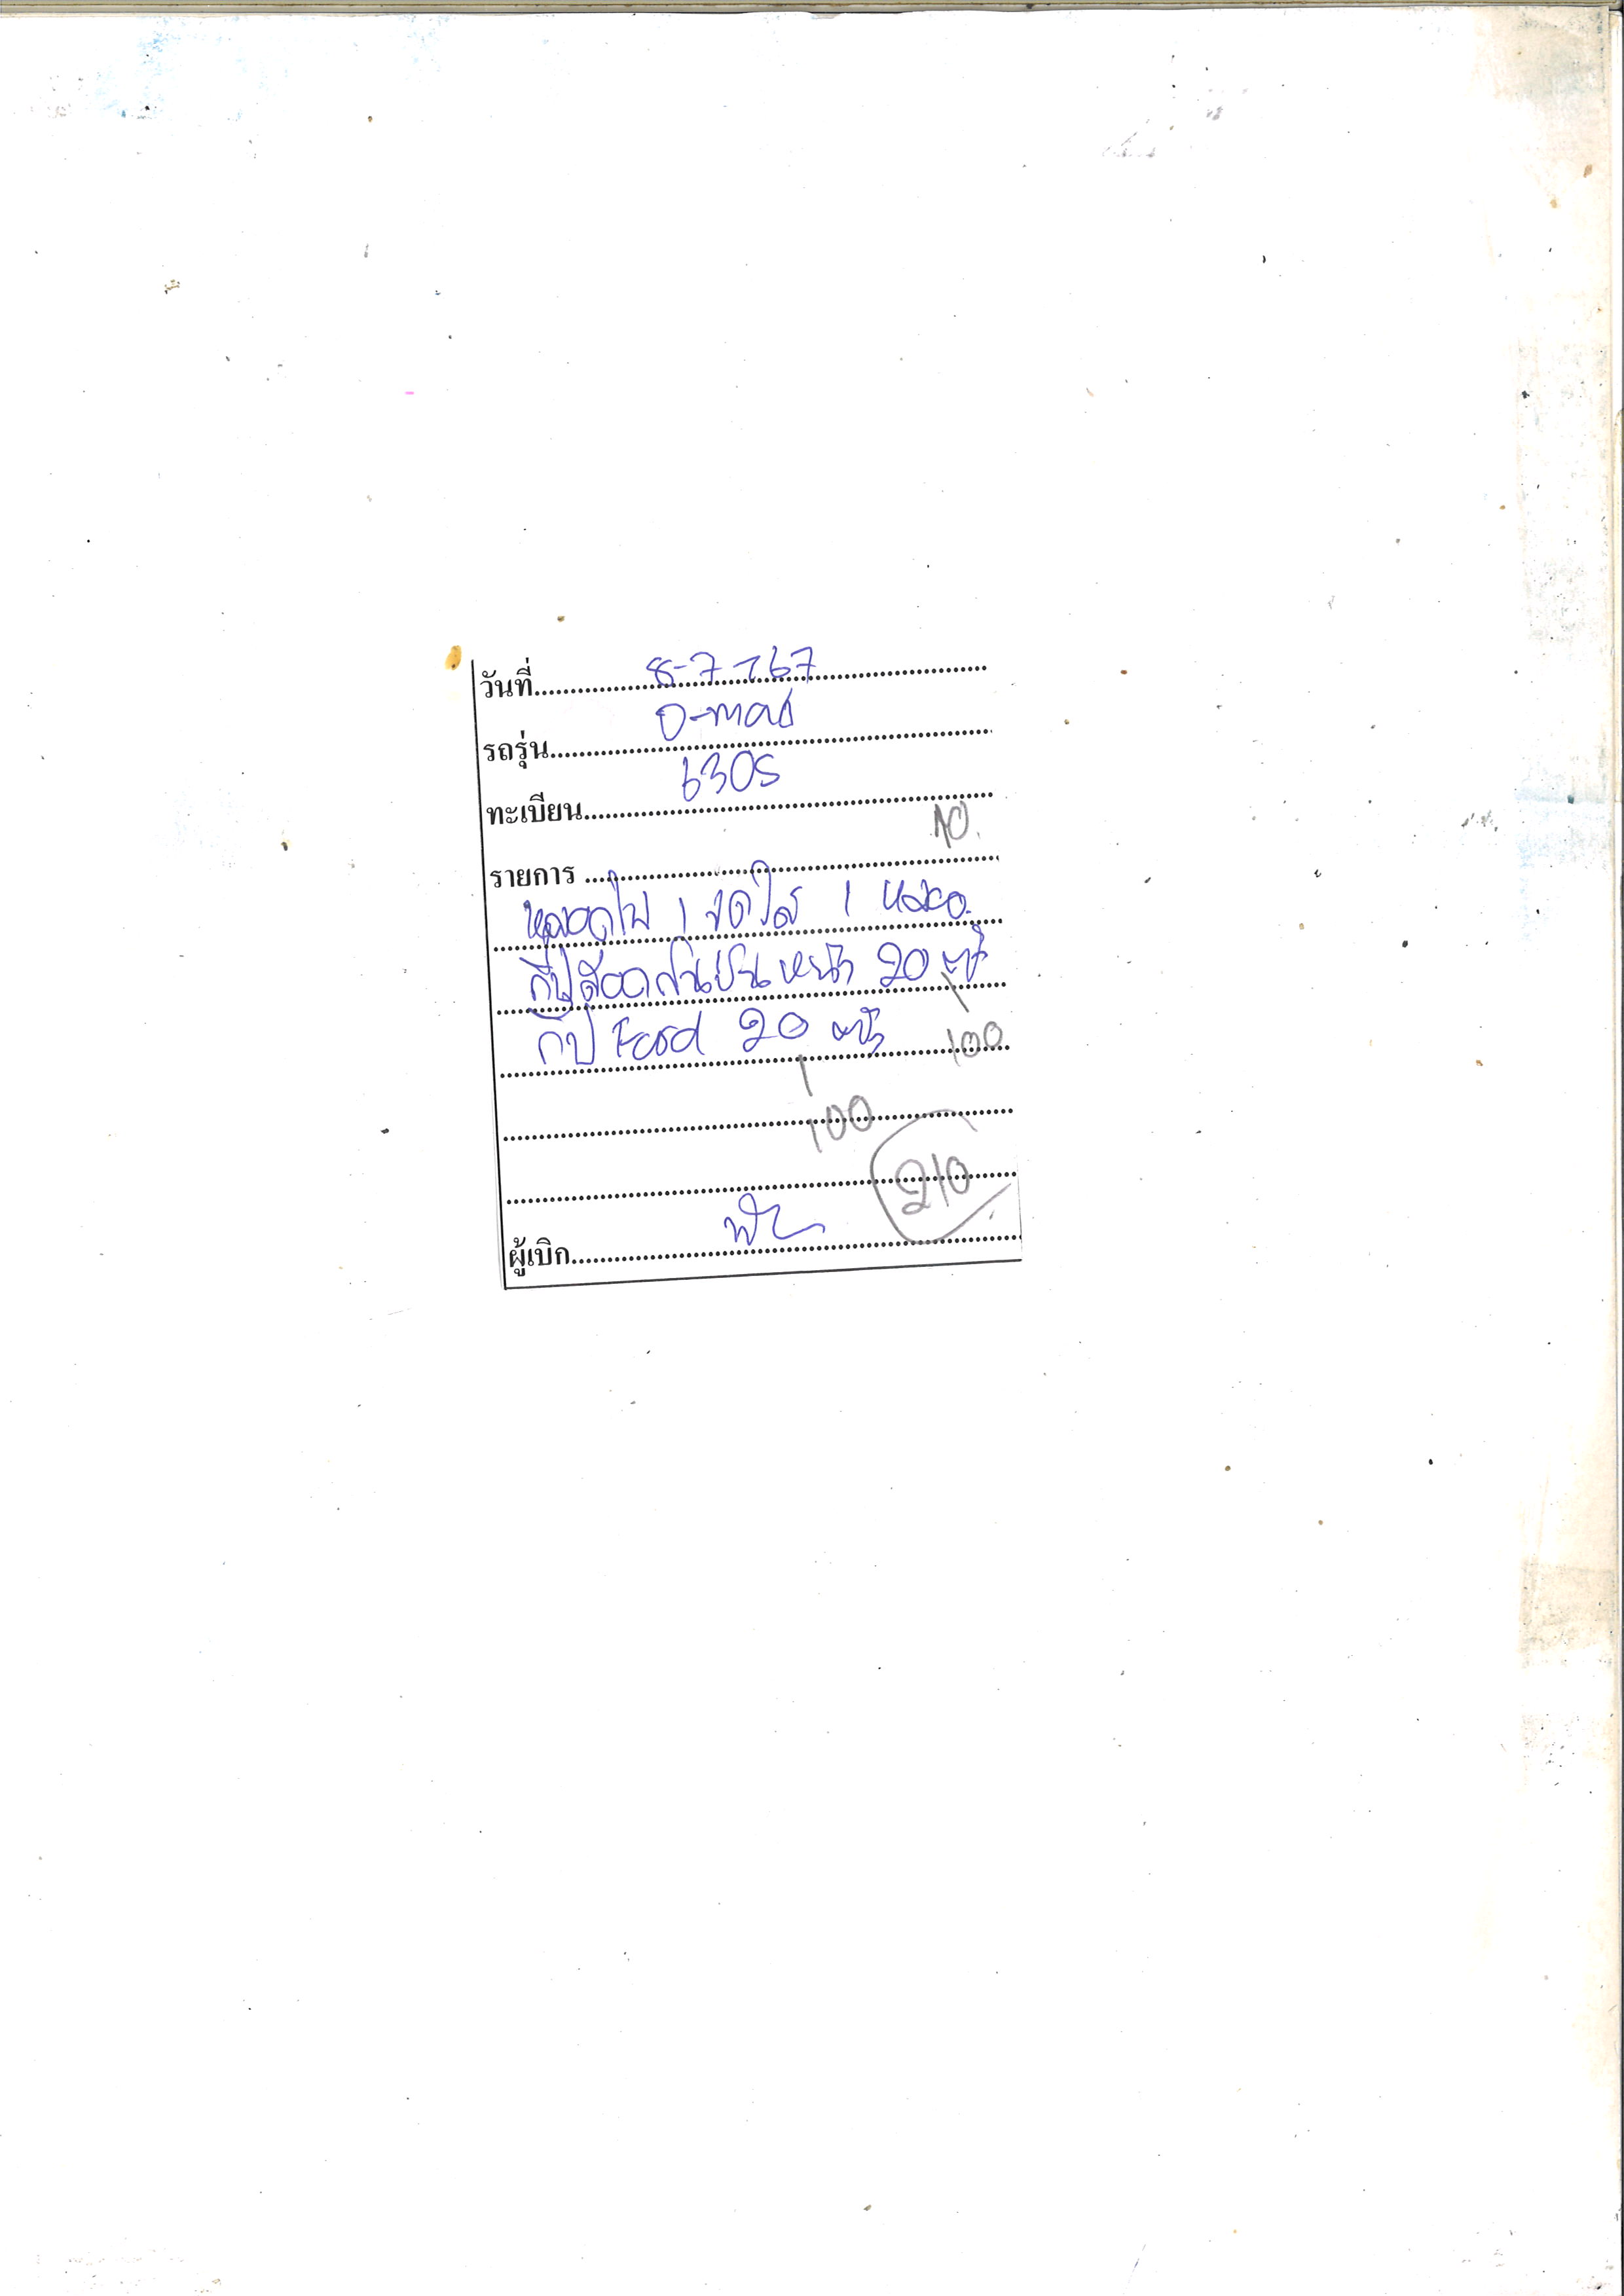 วันที่ 8-7-67
รถรุ่น D-max
ทะเบียน 6305
10
รายการ
หลอดไฟ 1 จุดใส 1 หลอด
กิ๊ปล็อค หน้า 20 ตัว
กิ๊ป Ford 20 ตัว 100
100
210
ผู้เบิก